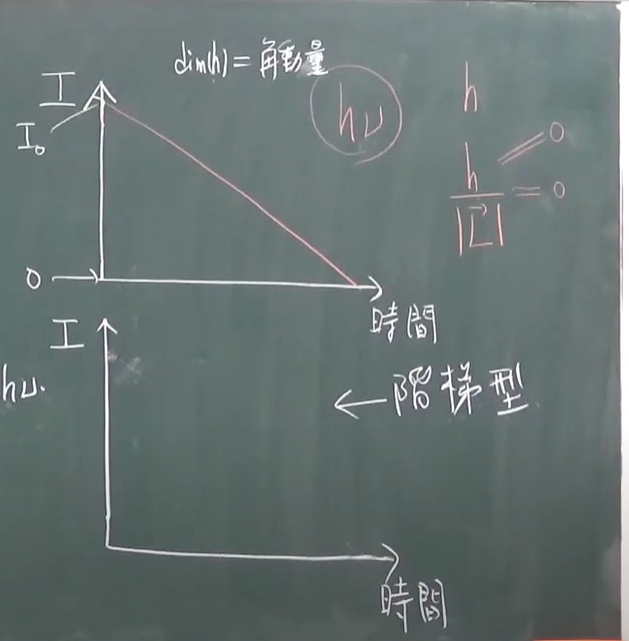 dim(h) = 角動量
I
I₀
hν
h
h = 0
|L⃗| = 0
0 →
時間
I
hν.
← 階梯型
時間